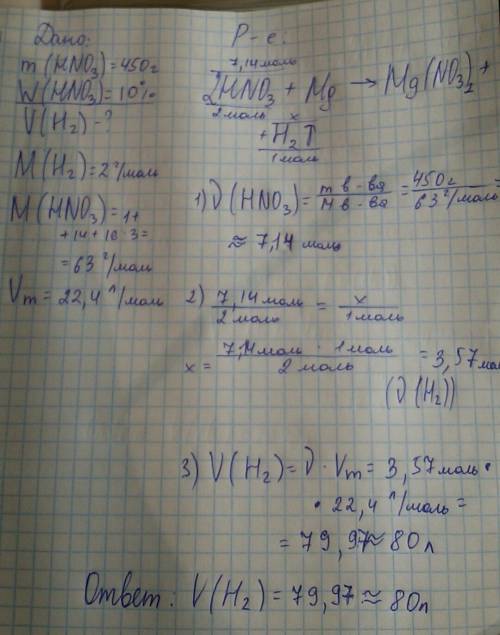 Дано:
m(HNO₃)=450г
W(HNO₃)=10%
V(H₂)-?
M(H₂)=2г/моль
M(HNO₃)=1+
+14+16·3=
=63г/моль
Vm=22,4л/моль
Р-е:
7,14моль x
2HNO₃ + Mg → Mg(NO₃)₂ +
2моль
+ H₂↑
1моль
1) ν(HNO₃)= m в-ва / M в-ва = 450г / 63г/моль =
≈ 7,14 моль
2) 7,14моль / 2моль = x / 1моль
x= 7,14моль · 1моль / 2моль = 3,57мол
(ν(H₂))
3) V(H₂)=ν·Vm=3,57моль·
·22,4л/моль=
=79,97≈80л
Ответ: V(H₂)=79,97≈80л